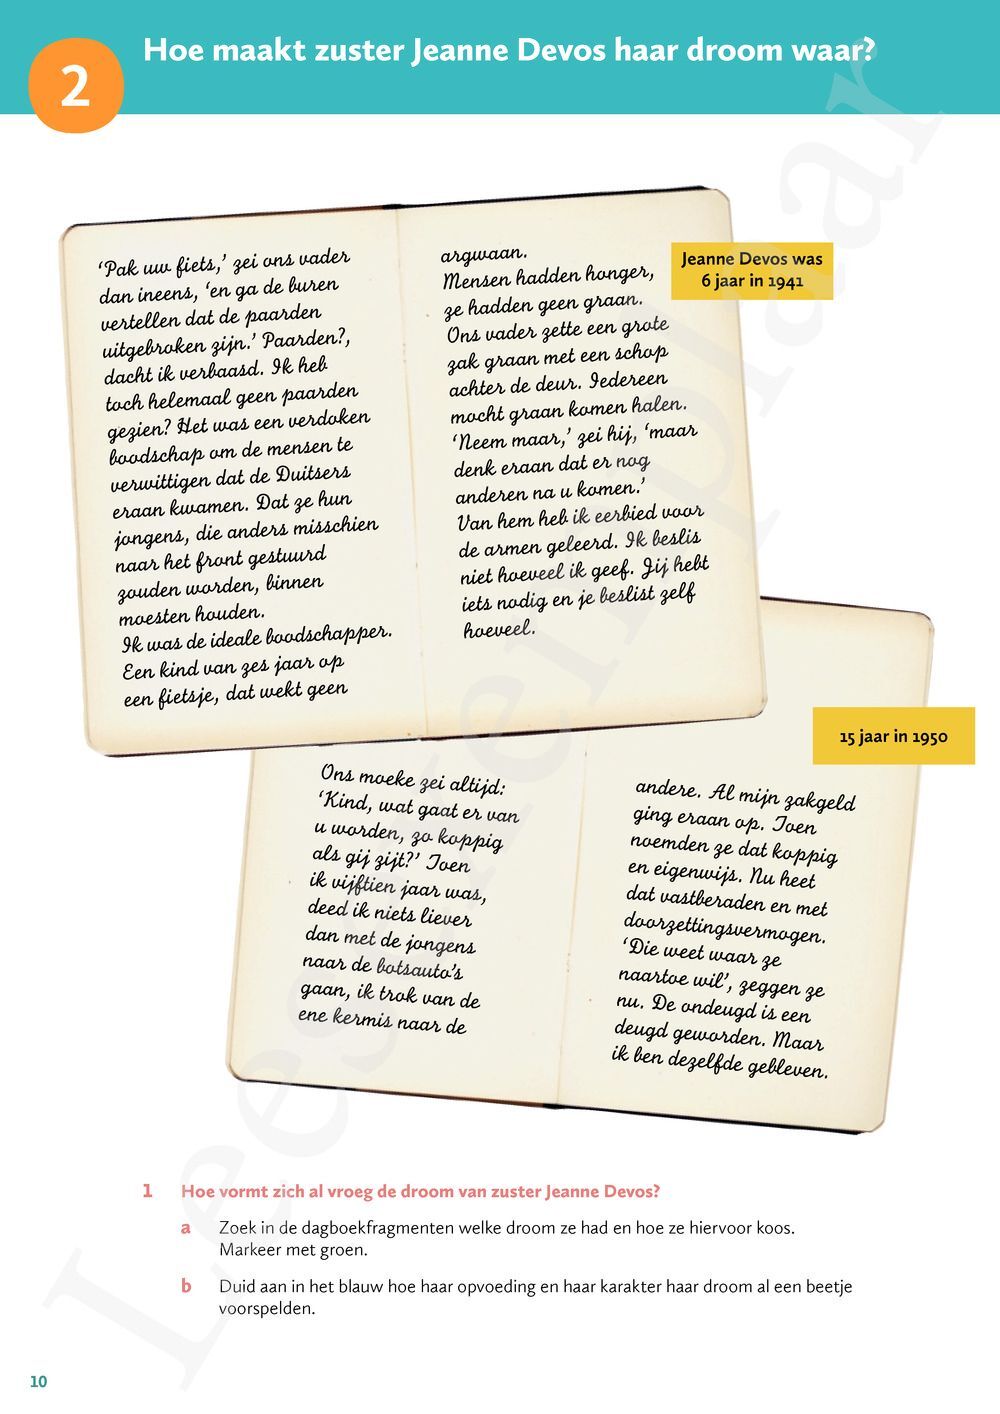 2
Hoe maakt zuster Jeanne Devos haar droom waar?
‘Pak uw fiets,’ zei ons vader
dan ineens, ‘en ga de buren
vertellen dat de paarden
uitgebroken zijn.’ Paarden?,
dacht ik verbaasd. Ik heb
toch helemaal geen paarden
gezien? Het was een verdoken
boodschap om de mensen te
verwittigen dat de Duitsers
eraan kwamen. Dat ze hun
jongens, die anders misschien
naar het front gestuurd
zouden worden, binnen
moesten houden.
Ik was de ideale boodschapper.
Een kind van zes jaar op
een fietsje, dat wekt geen
argwaan.
Mensen hadden honger,
ze hadden geen graan.
Ons vader zette een grote
zak graan met een schop
achter de deur. Iedereen
mocht graan komen halen.
‘Neem maar,’ zei hij, ‘maar
denk eraan dat er nog
anderen na u komen.’
Van hem heb ik eerbied voor
de armen geleerd. Ik beslis
niet hoeveel ik geef. Jij hebt
iets nodig en je beslist zelf
hoeveel.
Jeanne Devos was
6 jaar in 1941
15 jaar in 1950
Ons moeke zei altijd:
‘Kind, wat gaat er van
u worden, zo koppig
als gij zijt?’ Toen
ik vijftien jaar was,
deed ik niets liever
dan met de jongens
naar de botsauto’s
gaan, ik trok van de
ene kermis naar de
andere. Al mijn zakgeld
ging eraan op. Toen
noemden ze dat koppig
en eigenwijs. Nu heet
dat vastberaden en met
doorzettingsvermogen.
‘Die weet waar ze
naartoe wil’, zeggen ze
nu. De ondeugd is een
deugd geworden. Maar
ik ben dezelfde gebleven.
1 Hoe vormt zich al vroeg de droom van zuster Jeanne Devos?
a Zoek in de dagboekfragmenten welke droom ze had en hoe ze hiervoor koos.
Markeer met groen.
b Duid aan in het blauw hoe haar opvoeding en haar karakter haar droom al een beetje
voorspelden.
10
Leesexemplaar